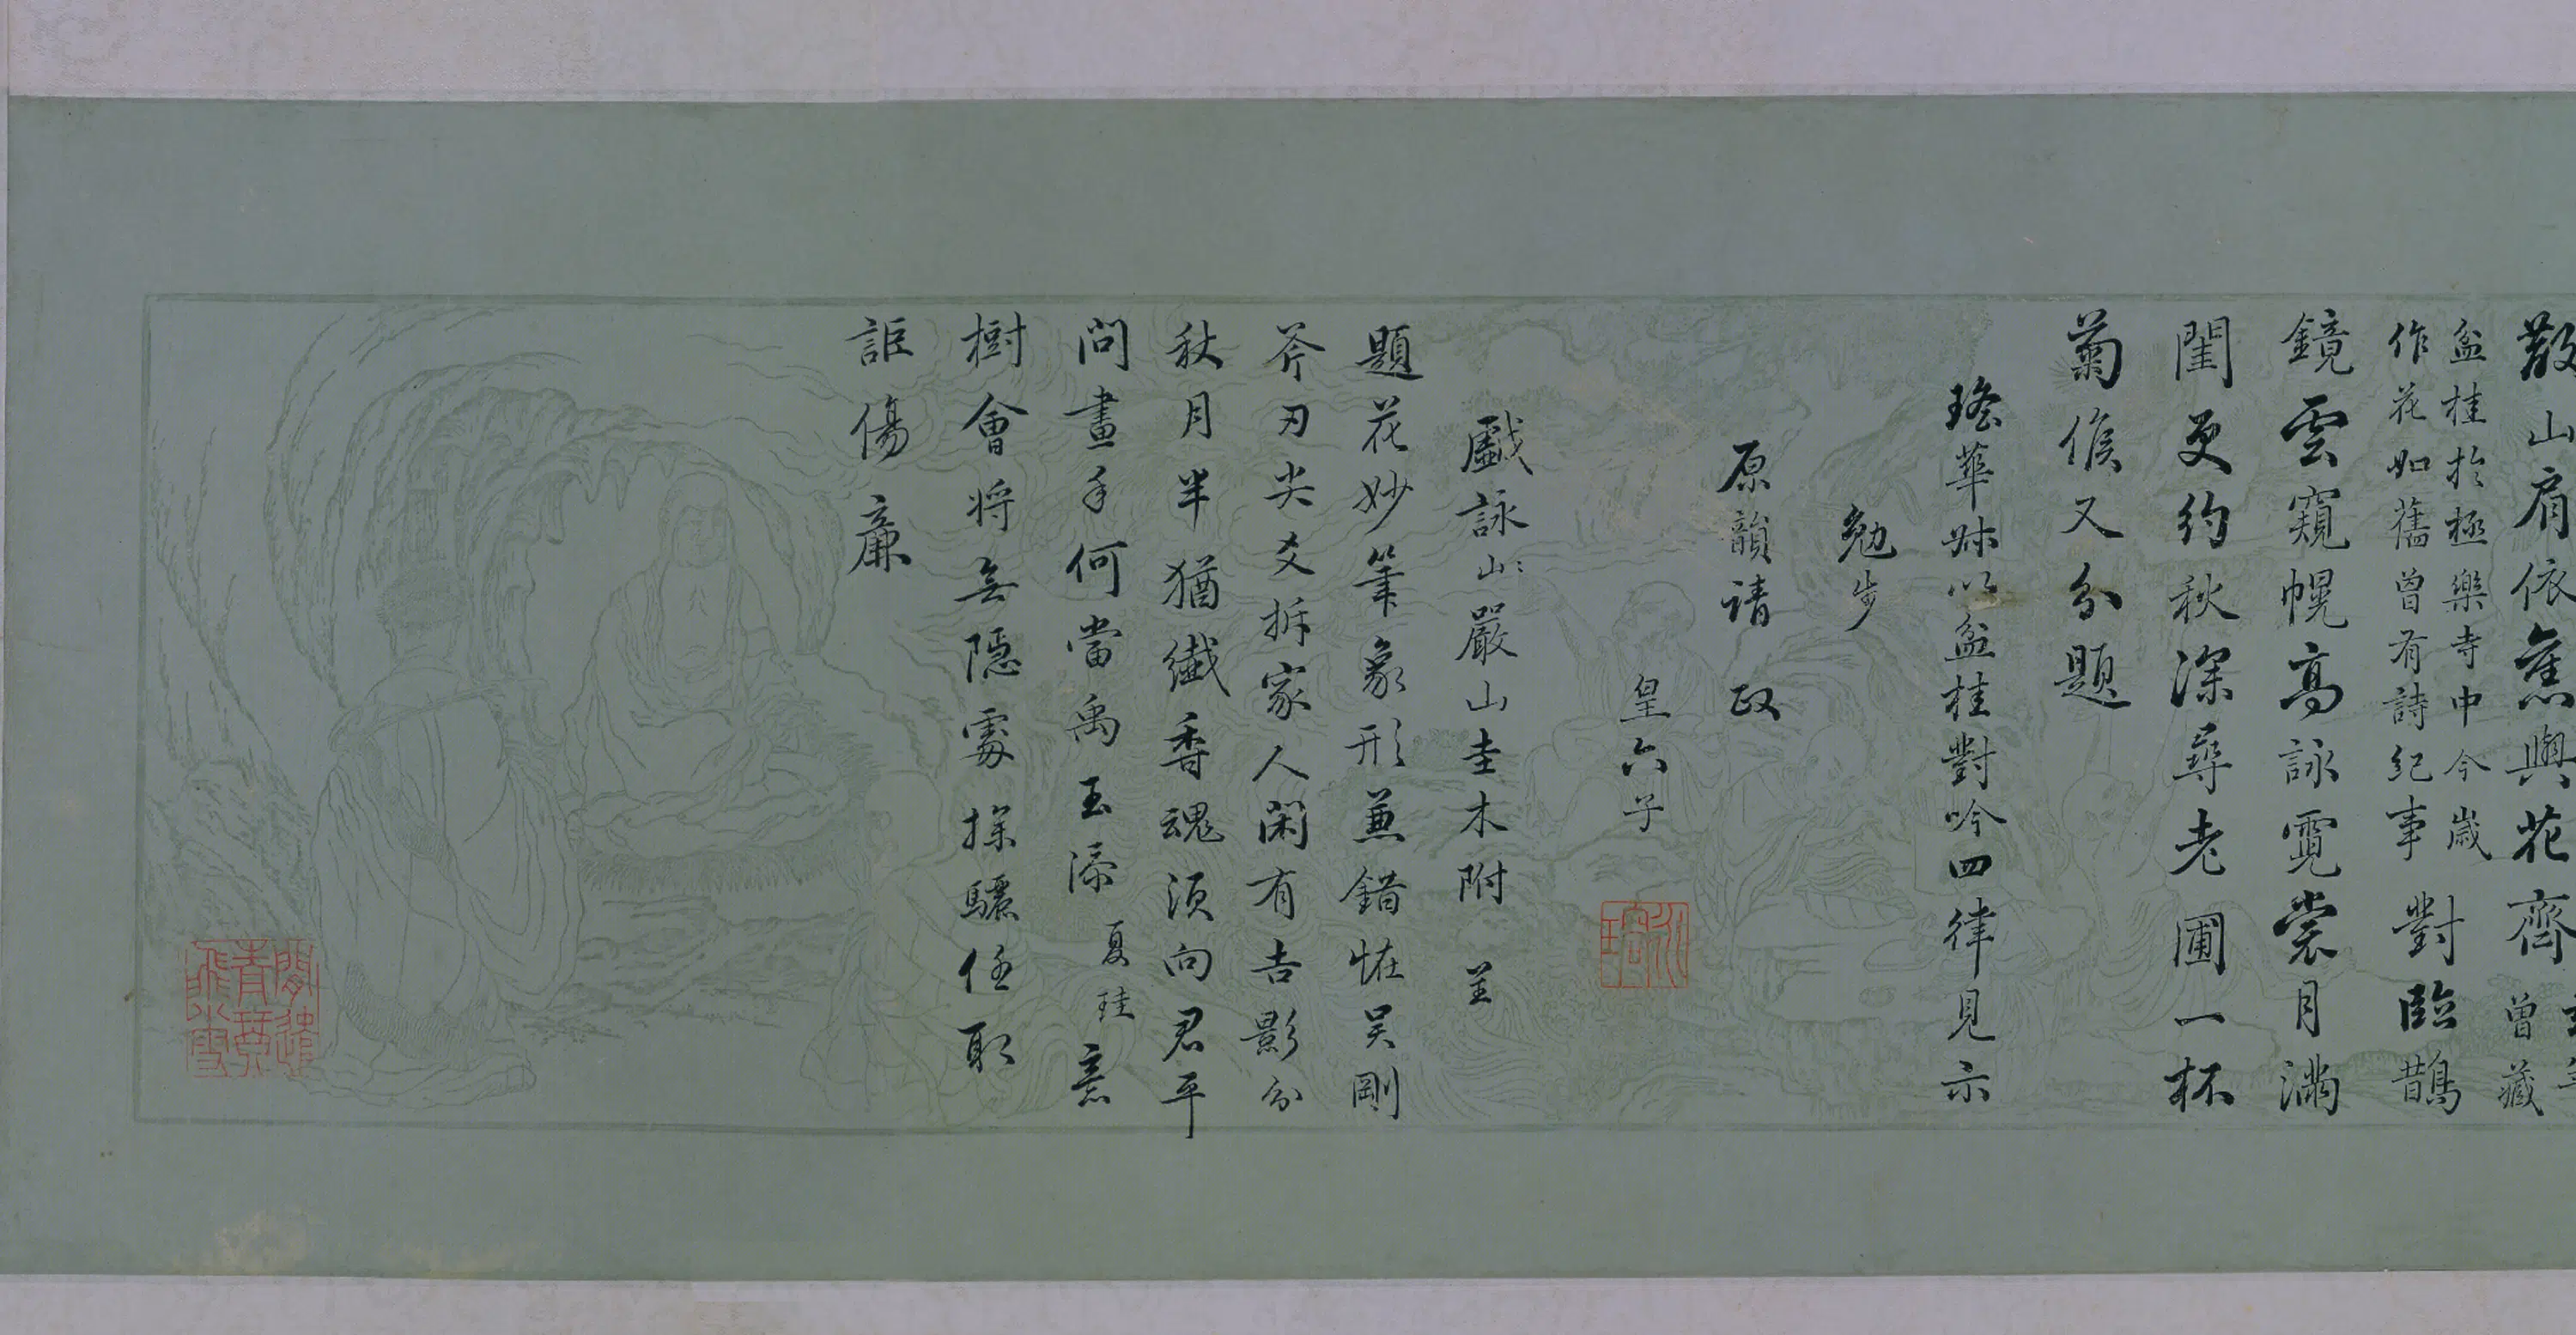 散山肩依舊與花齊
盆桂於極樂寺中今歲
作花如舊曾有詩紀事
對臨鵲
鏡雲窺幌高詠霓裳月滿
闈更約秋深尋老圃一杯
菊倏又分題
瑤華妹以盆桂對吟四律見示
勉步
原韻請政
皇六子
戲詠山嚴山圭木附呈
題花妙筆象形兼錯怪吳剛
斧刃尖爻拆家人閑有吉影分
秋月半猶纖香魂須向君平
問畫手何當禹玉添
夏珪
意
樹會將無隱處探驪任取
詎傷廉